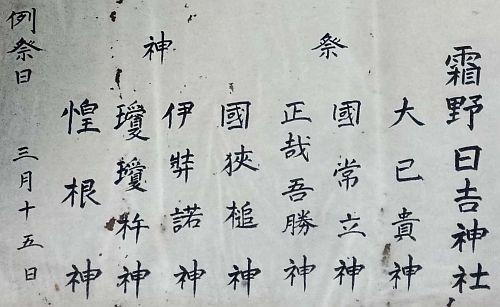 霜野日吉神社
祭神
大已貴神
國常立神
正哉吾勝神
國狹槌神
伊弉諾神
瓊瓊杵神
惶根神
例祭日 三月十五日